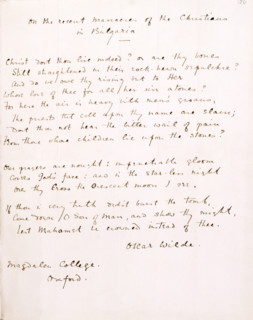 On the recent Massacre of the Christians
in Bulgaria
Christ dost thou live indeed? or are thy bones
Still straightened in their rock hewn sepulchre?
And do we owe thy rising but to Her
Whose love of thee for all her sin atones?
For here the air is heavy with men's groans,
The priests that call upon thy name are slain;
Dost thou not hear the bitter wail of pain
From those whose children lie upon the stones?
Our prayers are nought: impenetrable gloom
Covers God's face: and in the star-less night
Over thy Cross the Crescent moon I see.
If thou in very truth didst burst the tomb,
Come down, O Son of Man, and show thy might,
Lest Mahomet be crowned instead of thee.
Oscar Wilde.
Magdalen College.
Oxford.